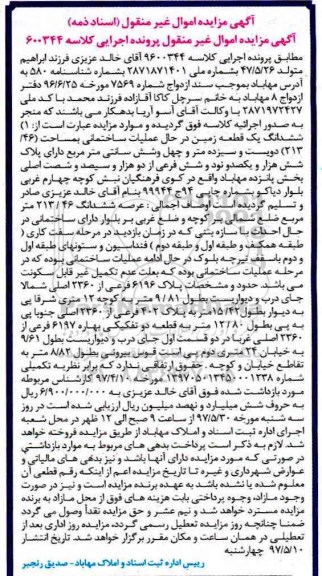 آگهی مزایده اموال غیر منقول (اسناد ذمه)
آگهی مزایده اموال غیر منقول پرونده اجرایی کلاسه ۶۰۰۳۴۴
مطابق پرونده اجرایی کلاسه ۹۶۰۰۳۴۴ آقای خالد عزیزی فرزند ابراهیم
متولد ۴۷/۵/۲۶ بشماره ملی ۲۸۷۱۸۷۱۴۰۱ بشماره شناسنامه ۵۸۰ به
آدرس مهاباد بموجب سند ازدواج شماره ۷۵۶۹ مورخه ۹۶/۶/۲۵ دفتر
ازدواج ۸ مهاباد به خانم سرچل کاکا آقازاده فرزند محمد با کد ملی
۲۸۷۱۹۷۲۴۲۷ با وکالت آقای آسو آریا بدهکار می باشند که منجر
به صدور اجرائیه کلاسه فوق گردیده و مورد مزایده عبارت است از: ۱)
ششدانگ یک قطعه زمین در حال عملیات ساختمانی بمساحت (۴۶/
۲۱۳) دویست و سیزده متر و چهل وشش سانتی متر مربع دارای پلاک
شش هزار و یکصدو نود و شش فرعی از دو هزار و سیصد و شصت اصلی
بخش پانزده مهاباد واقع در کوی فرهنگیان نبش کوچه چهارم غربی
بلوار دیاکو بشماره چاپی ۹۹۹۴۴ بنام آقای خالد عزیزی صادر
و تسلیم گردیده اوصاف اجمالی : عرصه ششدانگ ۲۱۳/۴۶ متر
مربع ضلع شمالی بر کوچه و ضلع غربی بر بلوار دارای ساختمانی در
حال احداث با سازه بتنی که در زمان بازدید در مرحله سفت کاری (
طبقه همکف و طبقه اول و طبقه دوم ) فنداسیون و ستونهای طبقه اول
و دوم باسقف تیرچه بلوک در حال ادامه عملیات ساختمانی بوده که در
مرحله عملیات ساختمانی بوده که بعلت عدم تکمیل غیر قابل سکونت
می باشد. حدود و مشخصات پلاک ۶۱۹۶ فرعی از ۲۳۶۰ اصلی شمالا
جای درب و دیواریست بطول ۹/۸۱ متر به کوچه ۱۲ متری شرقا پی
به دیوار بطول ۱۵/۴۲ متر به پلاک ۴۰۲ فرعی از ۲۳۶۰ اصلی جنوبا پی
به پی بطول ۱۲/۸۰ متر به قطعه دو تفکیکی بهاره ۶۱۹۷ فرعی از
۲۳۶۰ اصلی غربا در دو قسمت اول جای درب و دیواریست بطول ۹/۶۱
به خیابان ۲۴ متری دوم پی است قوس بیرونی بطول ۸/۸۲ متر به
تقاطع خیابان و کوچه . حقوق ارتفاقی ندارد که برابر نظریه تکمیلی
شماره ۱۳۹۷۰۵۰۱۳۴۵۰۰۰۱۳۳۸ مورخه ۹۷/۴/۱۰ کارشناس مربوطه
مورد بازداشت شده فوق آقای خالد عزیزی به ۶/۹۰۰/۰۰۰/۰۰۰ ریال
به حروف شش میلیارد و نهصد میلیون ریال ارزیابی شده است در روز
سه شنبه مورخه ۹۷/۵/۳۰ از ساعت ۹ صبح الی ۱۲ ظهر در محل شعبه
اجرای اداره ثبت اسناد و املاک مهاباد از طریق مزایده فروخته خواهد
شد. لازم به ذکر است پرداخت بدهی های مربوط به موارد بازداشتی
در صورتی که مورد مزایده دارای آنها باشد و نیز بدهی های مالیاتی و
عوارض شهرداری و غیره تا تاریخ مزایده اعم از اینکه رقم قطعی آن
معلوم شده یا نشده باشد به عهده برنده مزایده است و نیز در صورت
وجود مازاد، وجوه پرداختی بابت هزینه های فوق از محل مازاد به برنده
مزایده مسترد خواهد شد و نیم عشر و حق مزایده نقدا وصول می گردد
ضمنا چنانچه روز مزایده تعطیل رسمی گردد، مزایده روز اداری بعد از
تعطیلی در همان ساعت و مکان مقرر برگزار خواهد شد. تاریخ انتشار
۹۷/۵/۱۰ چهارشنبه
رییس اداره ثبت اسناد و املاک مهاباد- صدیق رنجبر